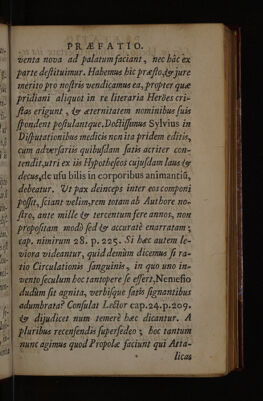 PRÆFATIO.
venta nova ad palatum faciant, nec hâc ex
parte destituimur. Habemus hic præsto, & jure
merito pro nostris vendicamus ea, propter quæ
pridiani aliquot in re literaria Heröes cri-
stas erigunt, & æternitatem nominibus suis
spondent postulantque. Doctissimus Sylvius in
Disputationibus medicis non ita pridem editis,
cum adversariis quibusdam satis acriter con-
tendit, utri ex iis Hypotheseos cujusdam laus &
decus, de usu bilis in corporibus animantiū,
debeatur. Ut pax deinceps inter eos componi
possit, sciant velim, rem totam ab Authore no-
stro, ante mille & tercentum fere annos, non
propositam modò sed & accuratè enarratam;
cap. nimirum 28. p. 225. Si hæc autem le-
viora videantur, quid demùm dicemus si ra-
tio Circulationis sanguinis, in quo uno in-
vento seculum hoc tantopere se effert, Nemesio
dudùm sit agnita, verbisque satis signantibus
adumbrata? Consulat Lector cap. 24. p. 209.
& dijudicet num temerè hæc dicantur. A
pluribus recensendis supersedeo; hoc tantum
nunc agimus quod Propolæ faciunt qui Atta-
licas